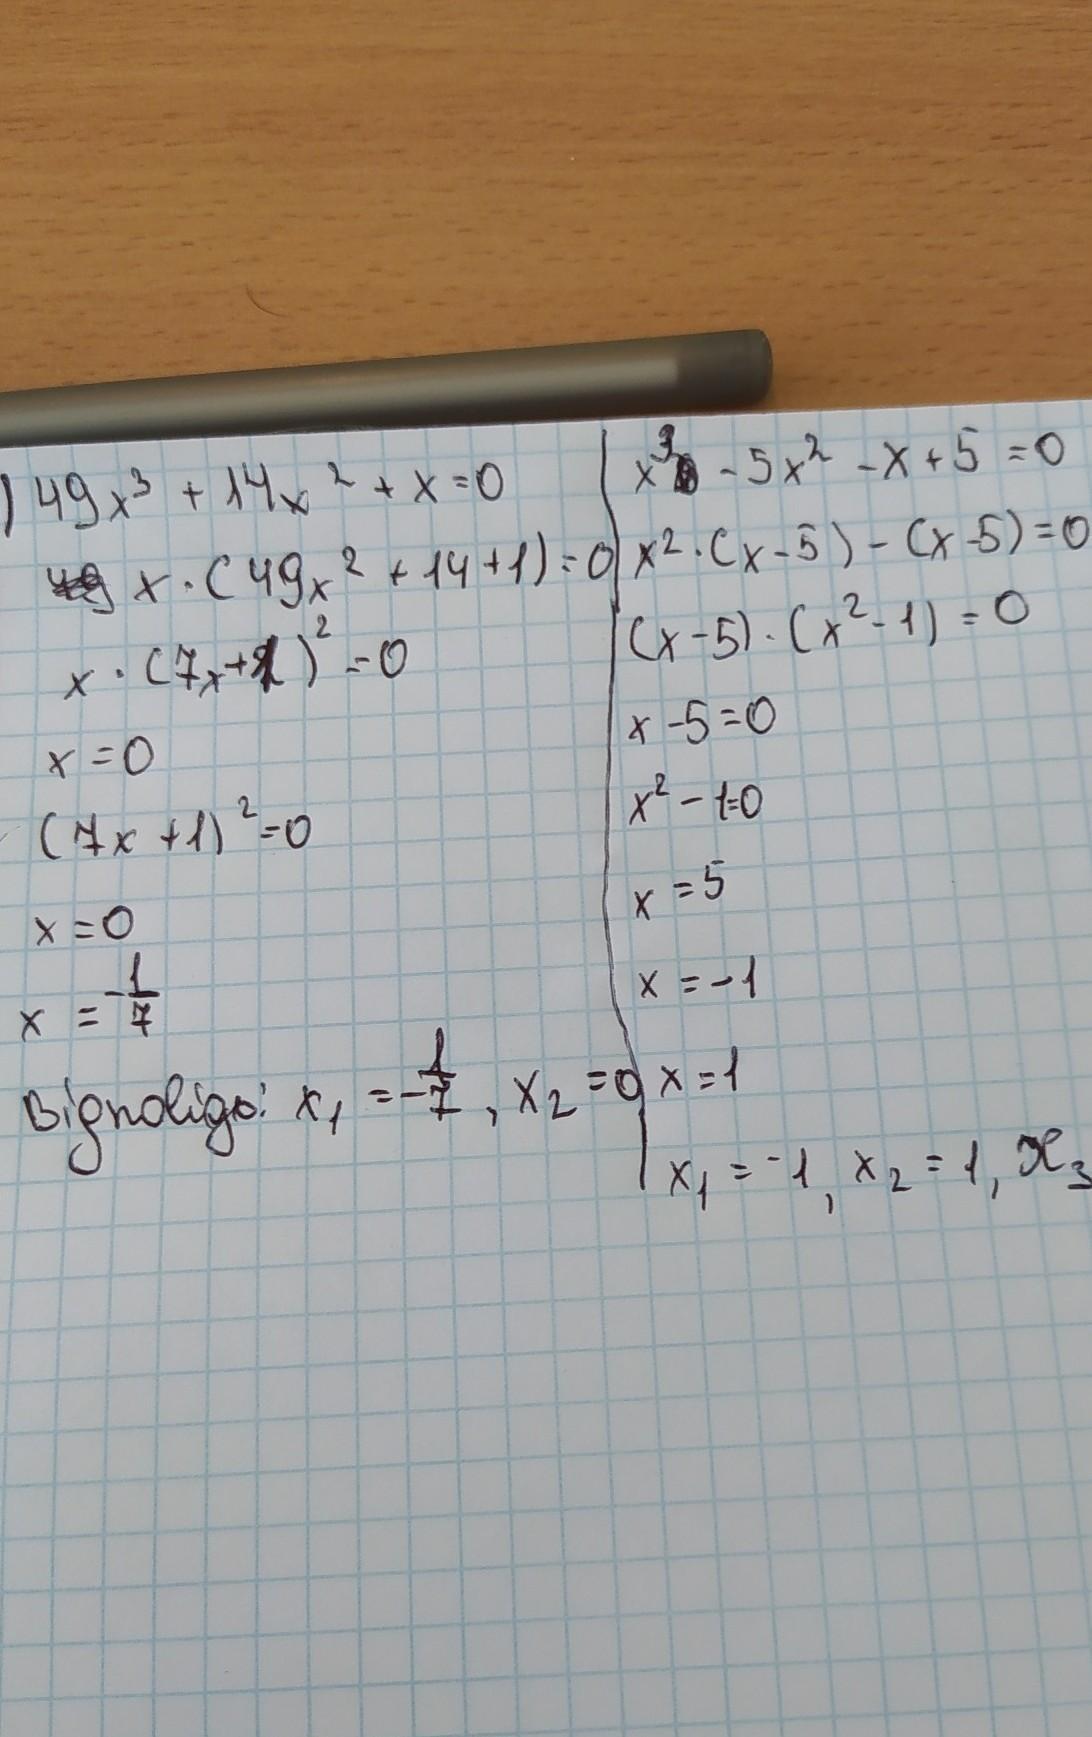 ) 49x³ + 14x² + x = 0
x · (49x² + 14 + 1) = 0
x · (7x + 1)² = 0
x = 0
(7x + 1)² = 0
x = 0
x = -1/7
Відповідь: x₁ = -1/7, x₂ = 0
x³ - 5x² - x + 5 = 0
x² · (x - 5) - (x - 5) = 0
(x - 5) · (x² - 1) = 0
x - 5 = 0
x² - 1 = 0
x = 5
x = -1
x = 1
x₁ = -1, x₂ = 1, x₃